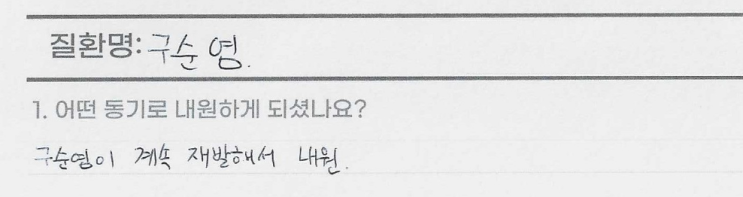 질환명: 구순염.
1. 어떤 동기로 내원하게 되셨나요?
구순염이 계속 재발해서 내원.